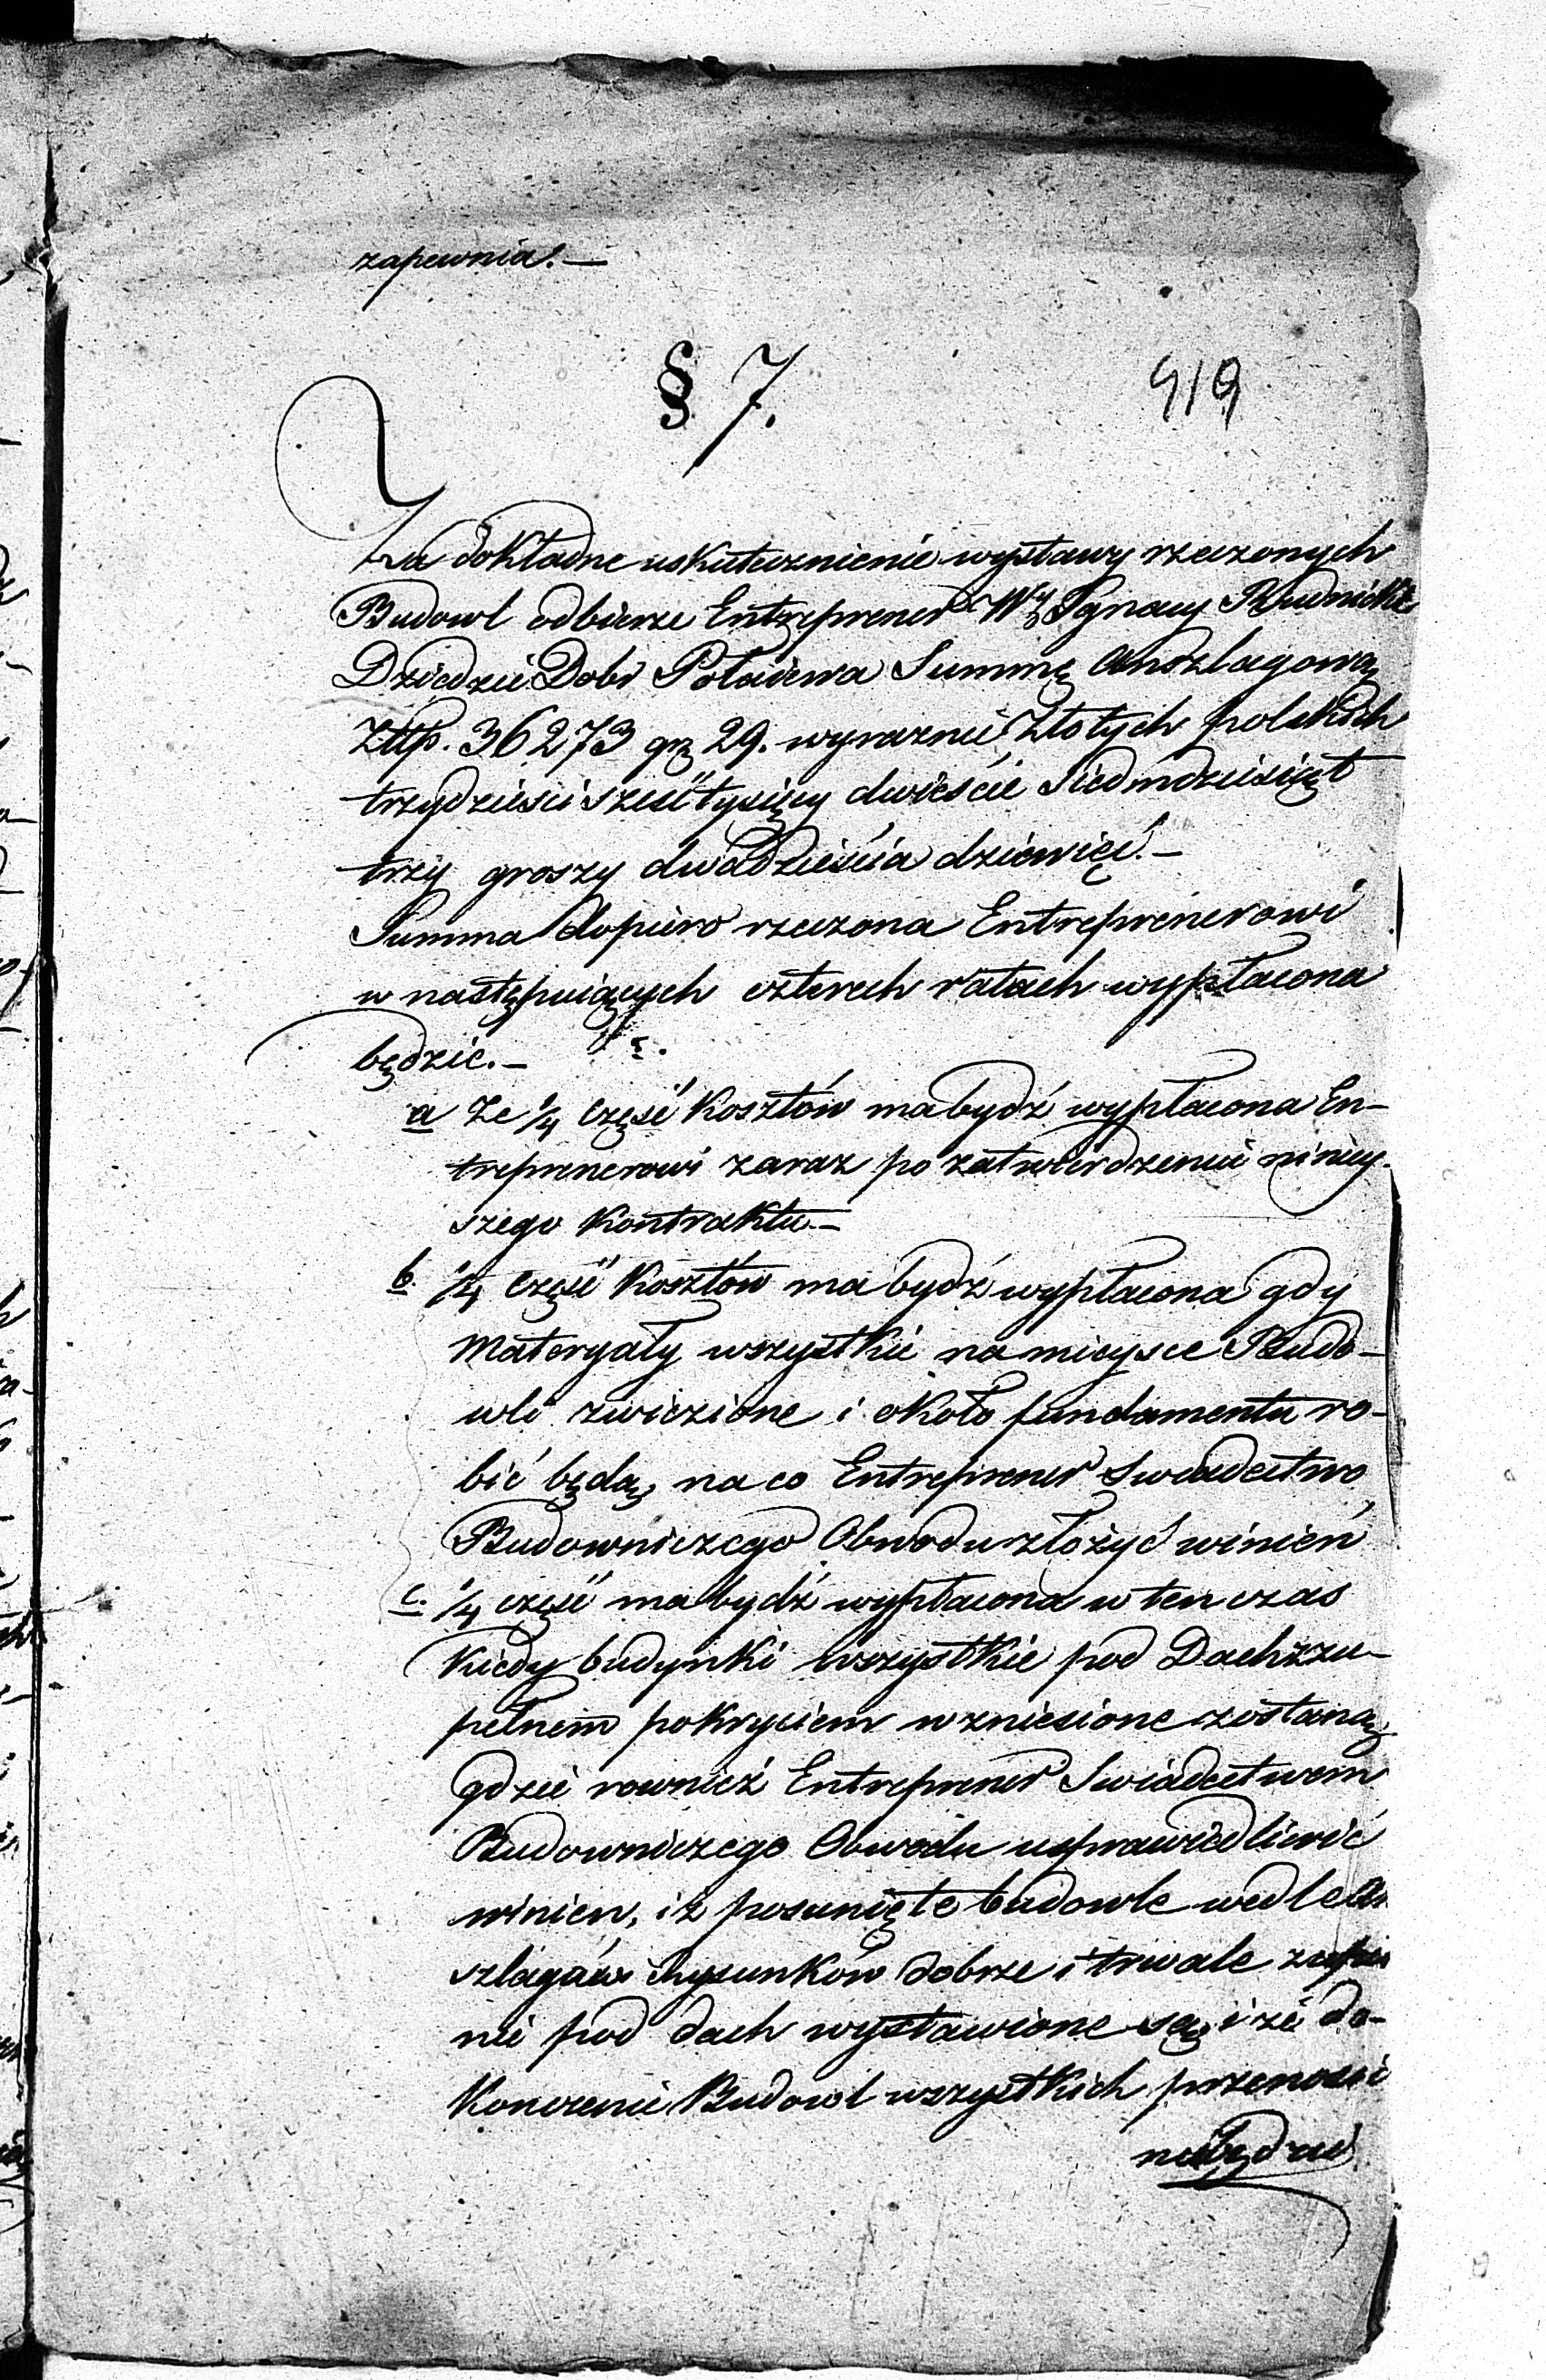 zapewnia.—
§ 7.
419
Za dokładne uskutecznienie wystawy rzeczonych
Budowl odbierze Entreprener Wy Ignacy Rudnicki
Dziedzic Dobr Połaiewa Summę Anszlagową
Złtp. 36273 gr 29. wyraznie Złotych polskich
trzydziesci sześć tysięcy dwieście siedmdziesiąt
trzy groszy dwadzieścia dziewięć.—
Summa dopiero rzeczona Entreprenerowi
w następuiących czterech ratach wypłacona
będzie.—
a Ze 1/4 część Kosztów ma bydź wypłacona En-
treprenerowi zaraz po zatwierdzeniu niniey-
szego Kontraktu.—
b. 1/4 część Kosztów ma bydź wypłacona gdy
Materyały wszystkie na mieysce Budo-
wli zwiezione i około fundamentu ro-
bić będą, na co Entreprener Swiadectwo
Budowniczego Obwodu złożyć winień
c. 1/4 część ma bydź wypłacona w ten czas
Kiedy budynki wszystkie pod Dach z zu-
pełnem pokryciem wzniesione zostaną,
gdzie rownież Entreprener Swiadectwem
Budowniczego Obwodu usprawiedliwić
winien, iż posunięte budowle wedle An
szlagów i Rysunków dobrze i trwale zupeł
nie pod dach wystawione są, i że do-
Konczenie Budowl wszystkich przenosić
nie będzie